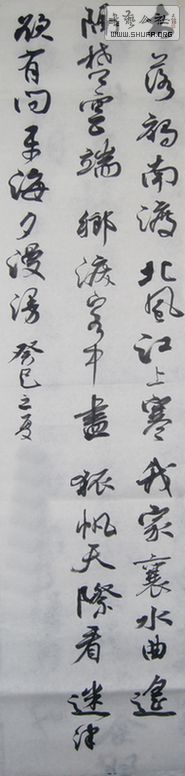 书艺公社
WWW.SHUFA.ORG
落鴈南渡北風江上寒我家襄水曲遙
隔楚雲端鄉淚客中盡孤帆天際看迷津
欲有問平海夕漫漫癸巳之夏